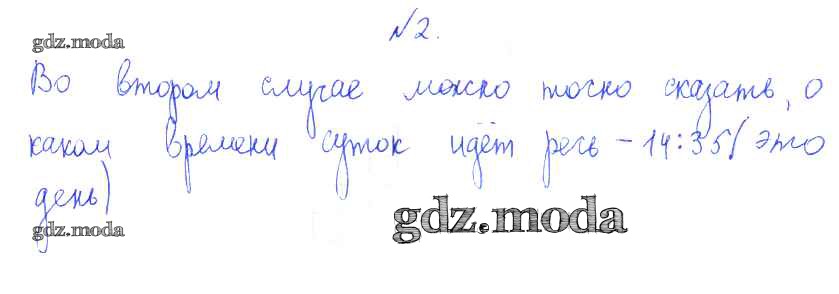 №2.
gdz.moda
Во втором случае можно точно сказать, о
каком времени суток идёт речь – 14:35 (это
день)
gdz.moda
gdz.moda